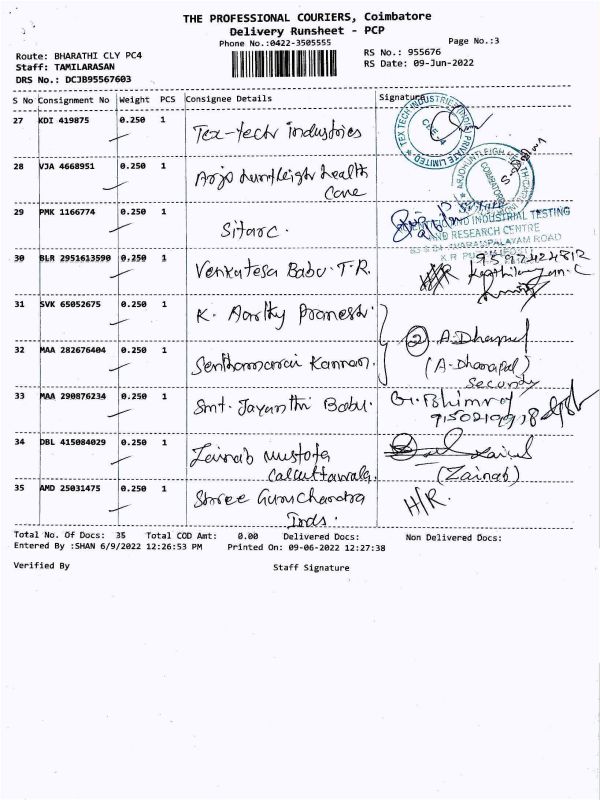 THE PROFESSIONAL COURIERS, Coimbatore
Delivery Runsheet - PCP
Phone No.:0422-3505555
Page No.:3
Route: BHARATHI CLY PC4
RS No.: 955676
Staff: TAMILARASAN
RS Date: 09-Jun-2022
DRS No.: DCJB95567603
S No Consignment No Weight PCS Consignee Details Signature
27 KDI 419875 0.250 1 Tex-tech industries
TEX TECH INDUSTRIES (INDIA) PRIVATE LIMITED
CBE-4
28 VJA 4668951 0.250 1 Arjo huntleigh health
Care
COIMBATORE
29 PMK 1166774 0.250 1 Sitarc.
SCIENTIFIC AND INDUSTRIAL TESTING
AND RESEARCH CENTRE
30 BLR 2951613590 0.250 1 Venkatesa Babu. T.R.
31 SVK 65052675 0.250 1 K. Aarthy Pramesh.
32 MAA 282676404 0.250 1 Senthamarai Kannan.
2 A-Dhanapal
(A-Dhanapal)
Security
33 MAA 290876234 0.250 1 Smt. Jayanthi Babu.
34 DBL 415084029 0.250 1 Zainab Mustofa
Calcuttawala.
(Zainab)
35 AMD 25031475 0.250 1 Shree Guruchandra
Inds.
H/R.
Total No. Of Docs: 35 Total COD Amt: 0.00 Delivered Docs: Non Delivered Docs:
Entered By :SHAN 6/9/2022 12:26:53 PM Printed On: 09-06-2022 12:27:38
Verified By Staff Signature